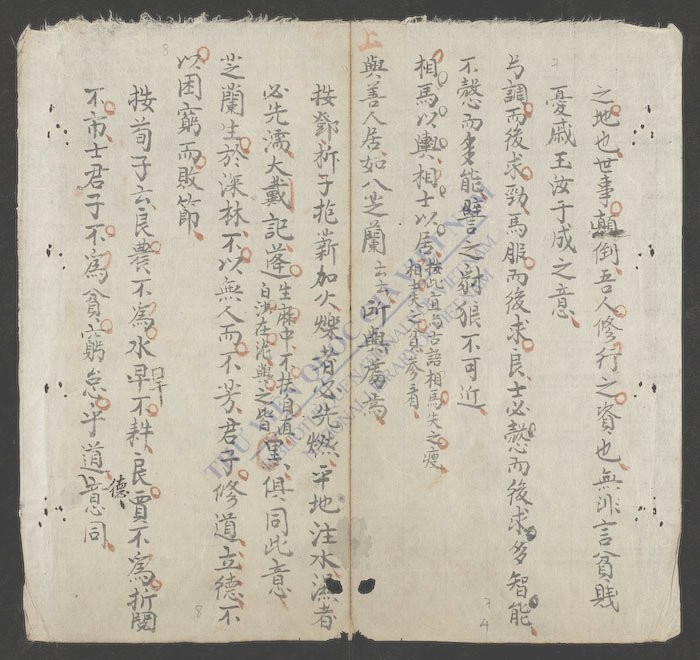 之地也世事顛倒吾人修行之資也無非言貧賤
憂戚玉汝于成之意
弓調而後求勁馬服而後求良士必愨而後求多智能
不愨而多能譬之豺狼不可近
相馬以輿相士以居
按此宜与古語相馬失之瘦
相士失之貧參看
與善人居如入芝蘭云云所與處焉
上
按鄧析子抱薪加火爍者必先燃平地注水濕者
必先濡大戴記蓬生麻中不扶自直
白沙在泥與之皆黑俱同此意
芝蘭生於深林不以無人而不芳君子修道立德不
以困窮而敗節
按荀子云良農不為水旱不耕良賈不為折閱
不市士君子不為貧窮怠乎道意同
德
THƯ VIỆN QUỐC GIA VIỆT NAM
NATIONAL LIBRARY OF VIETNAM